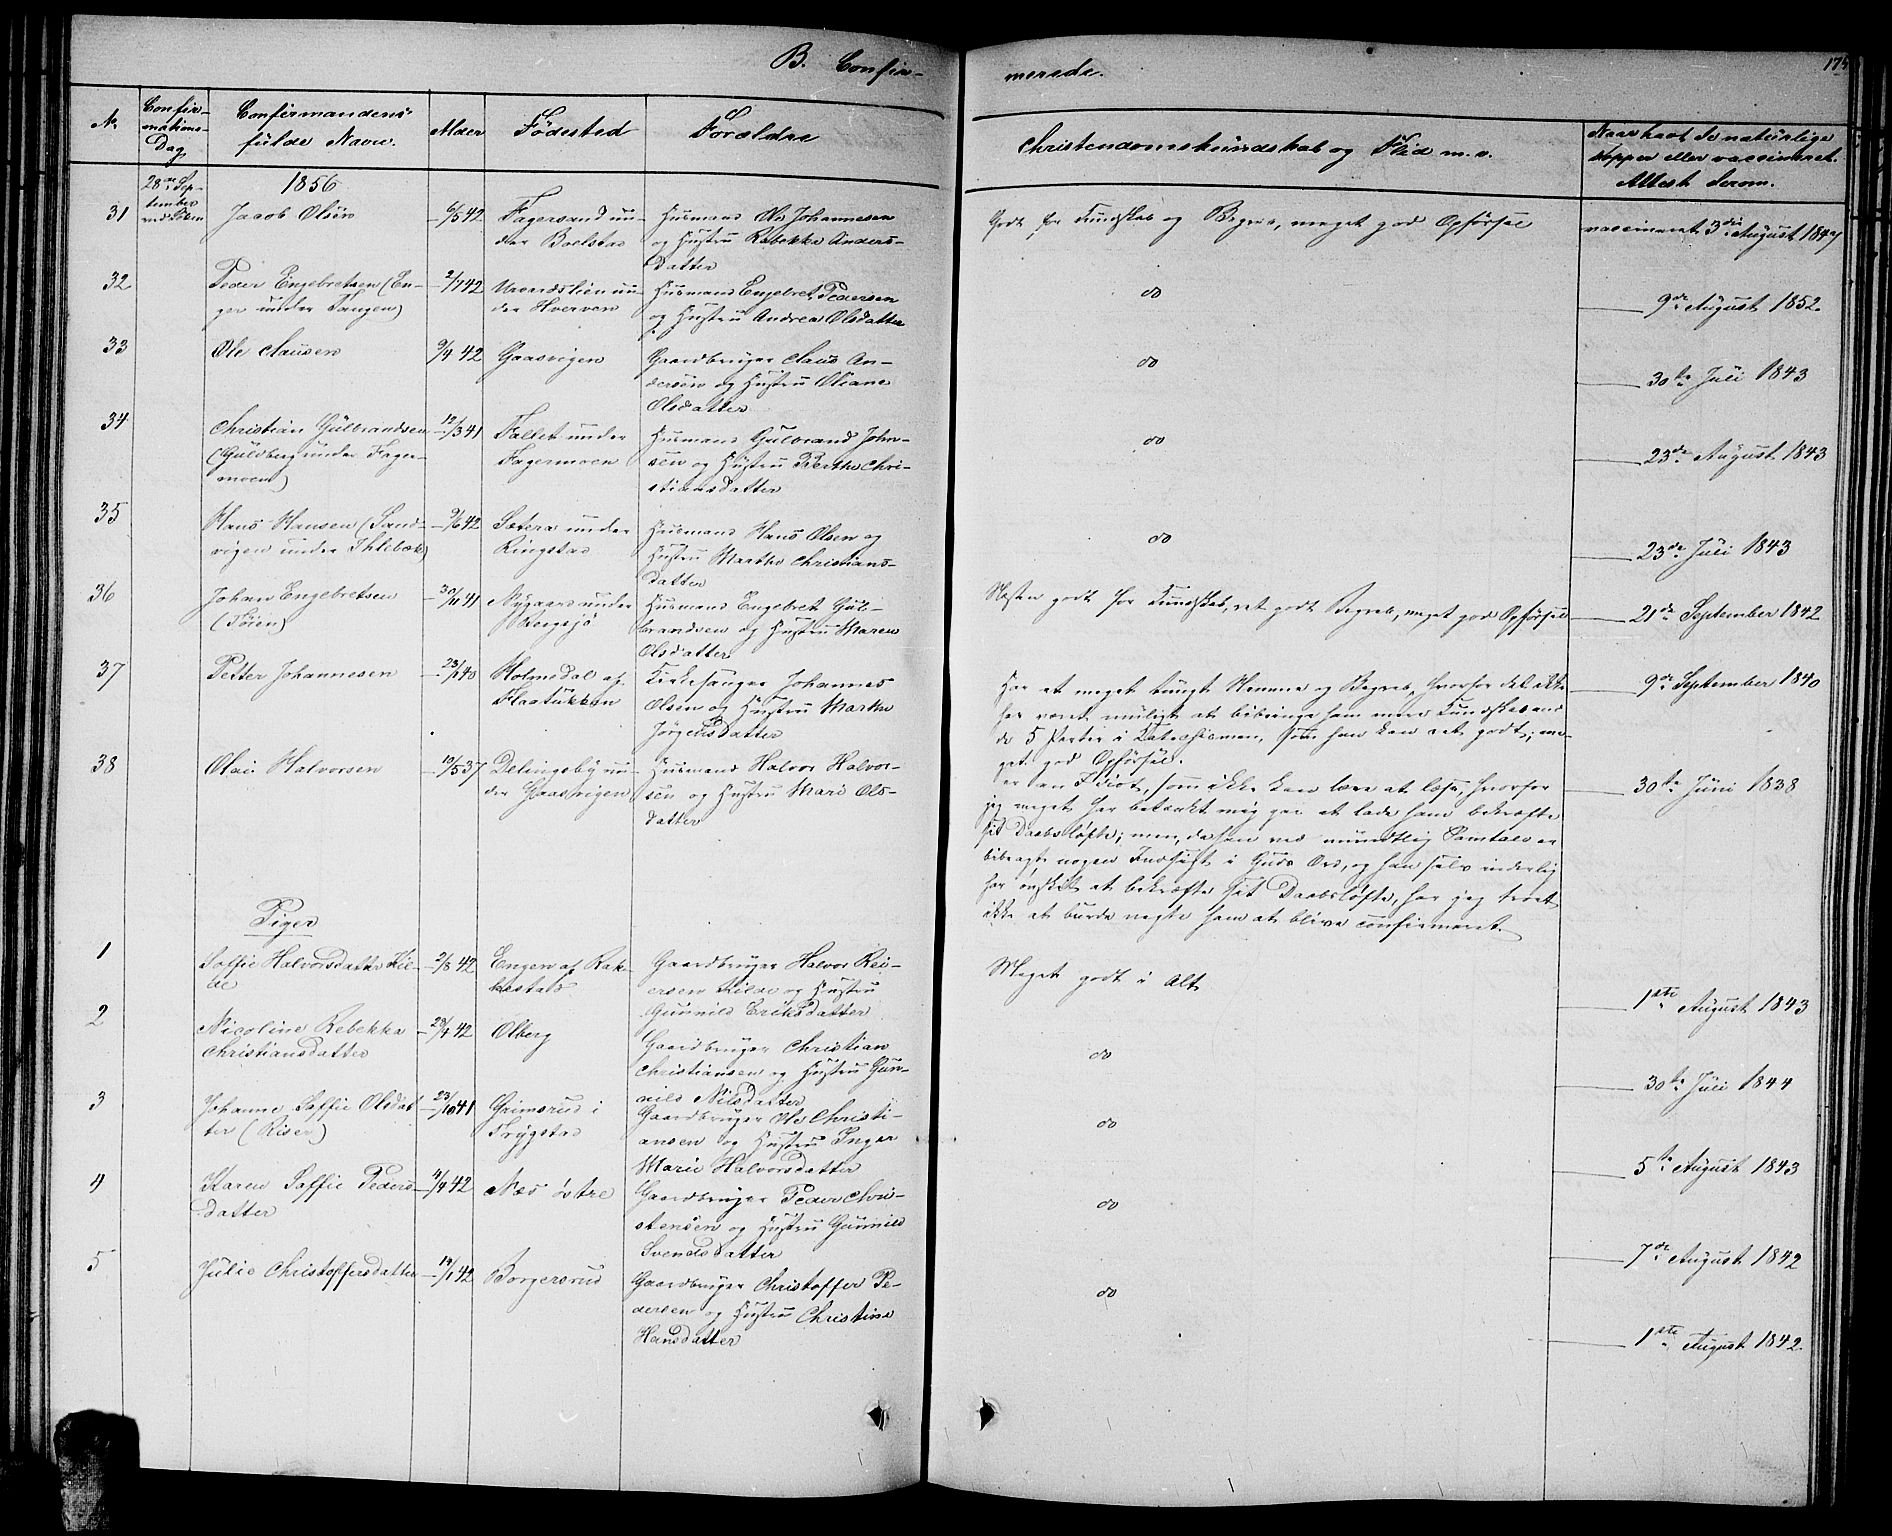 B. Confir-
merede.
175
No
Confir-
mations-
Dag
Confirmandens
fulde Navn.
Alder
Fødested
Forældre
Christendomskundskab og Flid m.v.
Naar havt de naturlige
Kopper eller vaccineret.
Attest derom.
28de Sep-
tember
1856
31
Jacob Olsen
6/5 42
Fagersand un-
der Boelstad
Husmand Ole Johannesen
og Hustru Rebekka Anders-
datter
Godt for Kundskab og Begreb, meget god Opførsel
vaccineret 3die August 1847
32
Peder Engebretsen (En-
ger under Tangen)
2/7 42
der Hverven
Husmand Engebret Pedersen
og Hustru Andrea Olsdatter
do
9de August 1852.
33
Ole Clausen
9/4 42
Gaasvigen
Gaardbruger Claus An-
dersen og Hustru Oliane
Olsdatter
do
30te Juli 1843
34
Christian Gulbrandsen
(Guldberg under Fager-
moen)
12/3 41
Fallet under
Fagermoen
Husmand Gulbrand John-
sen og Hustru Berthe Chri-
stiansdatter
do
23de August 1843
35
Hans Hansen (Sand-
vigen under Ihlebæk)
9/6 42
Sætera under
Ringstad
Husmand Hans Olsen og
Hustru Marthe Christians-
datter
do
23de Juli 1843
36
Johan Engebretsen
(Tøien)
30/11 41
Nygaard under
Bergsjø
Husmand Engebret Gul-
brandsen og Hustru Maren
Olsdatter
Næsten godt for Kundskab, ret godt Begreb, meget god Opførsel
21de September 1842
37
Petter Johannesen
23/1 40
Holmedal af
Flaatukken
Kirkesanger Johannes
Olsen og Hustru Marthe
Jørgensdatter
Har et meget tungt Nemme og Begreb, hvorfor det ikke
har været muligt at bibringe ham mere Kundskab end
de 5 Parter i Katechismen, som han kan ret godt; me-
get god Opførsel.
9de September 1840
38
Olai Halvorsen
10/5 37
Delingsby un-
der Gaasvigen
Husmand Halvor Halvor-
sen og Hustru Mari Ols-
datter
er en Idiot, som ikke kan lære at læse, hvorfor
jeg meget har betænkt mig paa at lade ham bekræfte
sit Daabsløfte; men, da han ved mundtlig Samtale er
bibragt nogen Indsigt i Guds Ord, og han selv inderlig
har ønsket at bekræfte sit Daabsløfte, har jeg troet
ikke at burde negte ham at blive confirmeret.
30te Juni 1838
Piger
1
Soffie Halvorsdatter Kil-
de
2/8 42
Engen af Rak-
kestad
Gaardbruger Halvor Rei-
ersen Kilde og Hustru
Gunnild Eriksdatter
Meget godt i Alt
1ste August 1843
2
Nicoline Rebekka
Christiansdatter
28/4 42
Olberg
Gaardbruger Christian
Christiansen og Hustru Gun-
nild Nilsdatter
do
30te Juli 1844
3
Johanne Soffie Olsdat-
ter (Riser)
23/10 41
Grimsrud i
Trygstad
Gaardbruger Ole Christi-
ansen og Hustru Inger
Marie Halvorsdatter
do
5te August 1843
4
Karen Soffie Peders-
datter
4/4 42
Næs østre
Gaardbruger Peder Chri-
stensen og Hustru Gunnild
Svendsdatter
do
7de August 1842
5
Julie Christoffersdatter
14/1 42
Borgersrud
Gaardbruger Christoffer Pe-
dersen og Hustru Christine
Hansdatter
do
1ste August 1842.